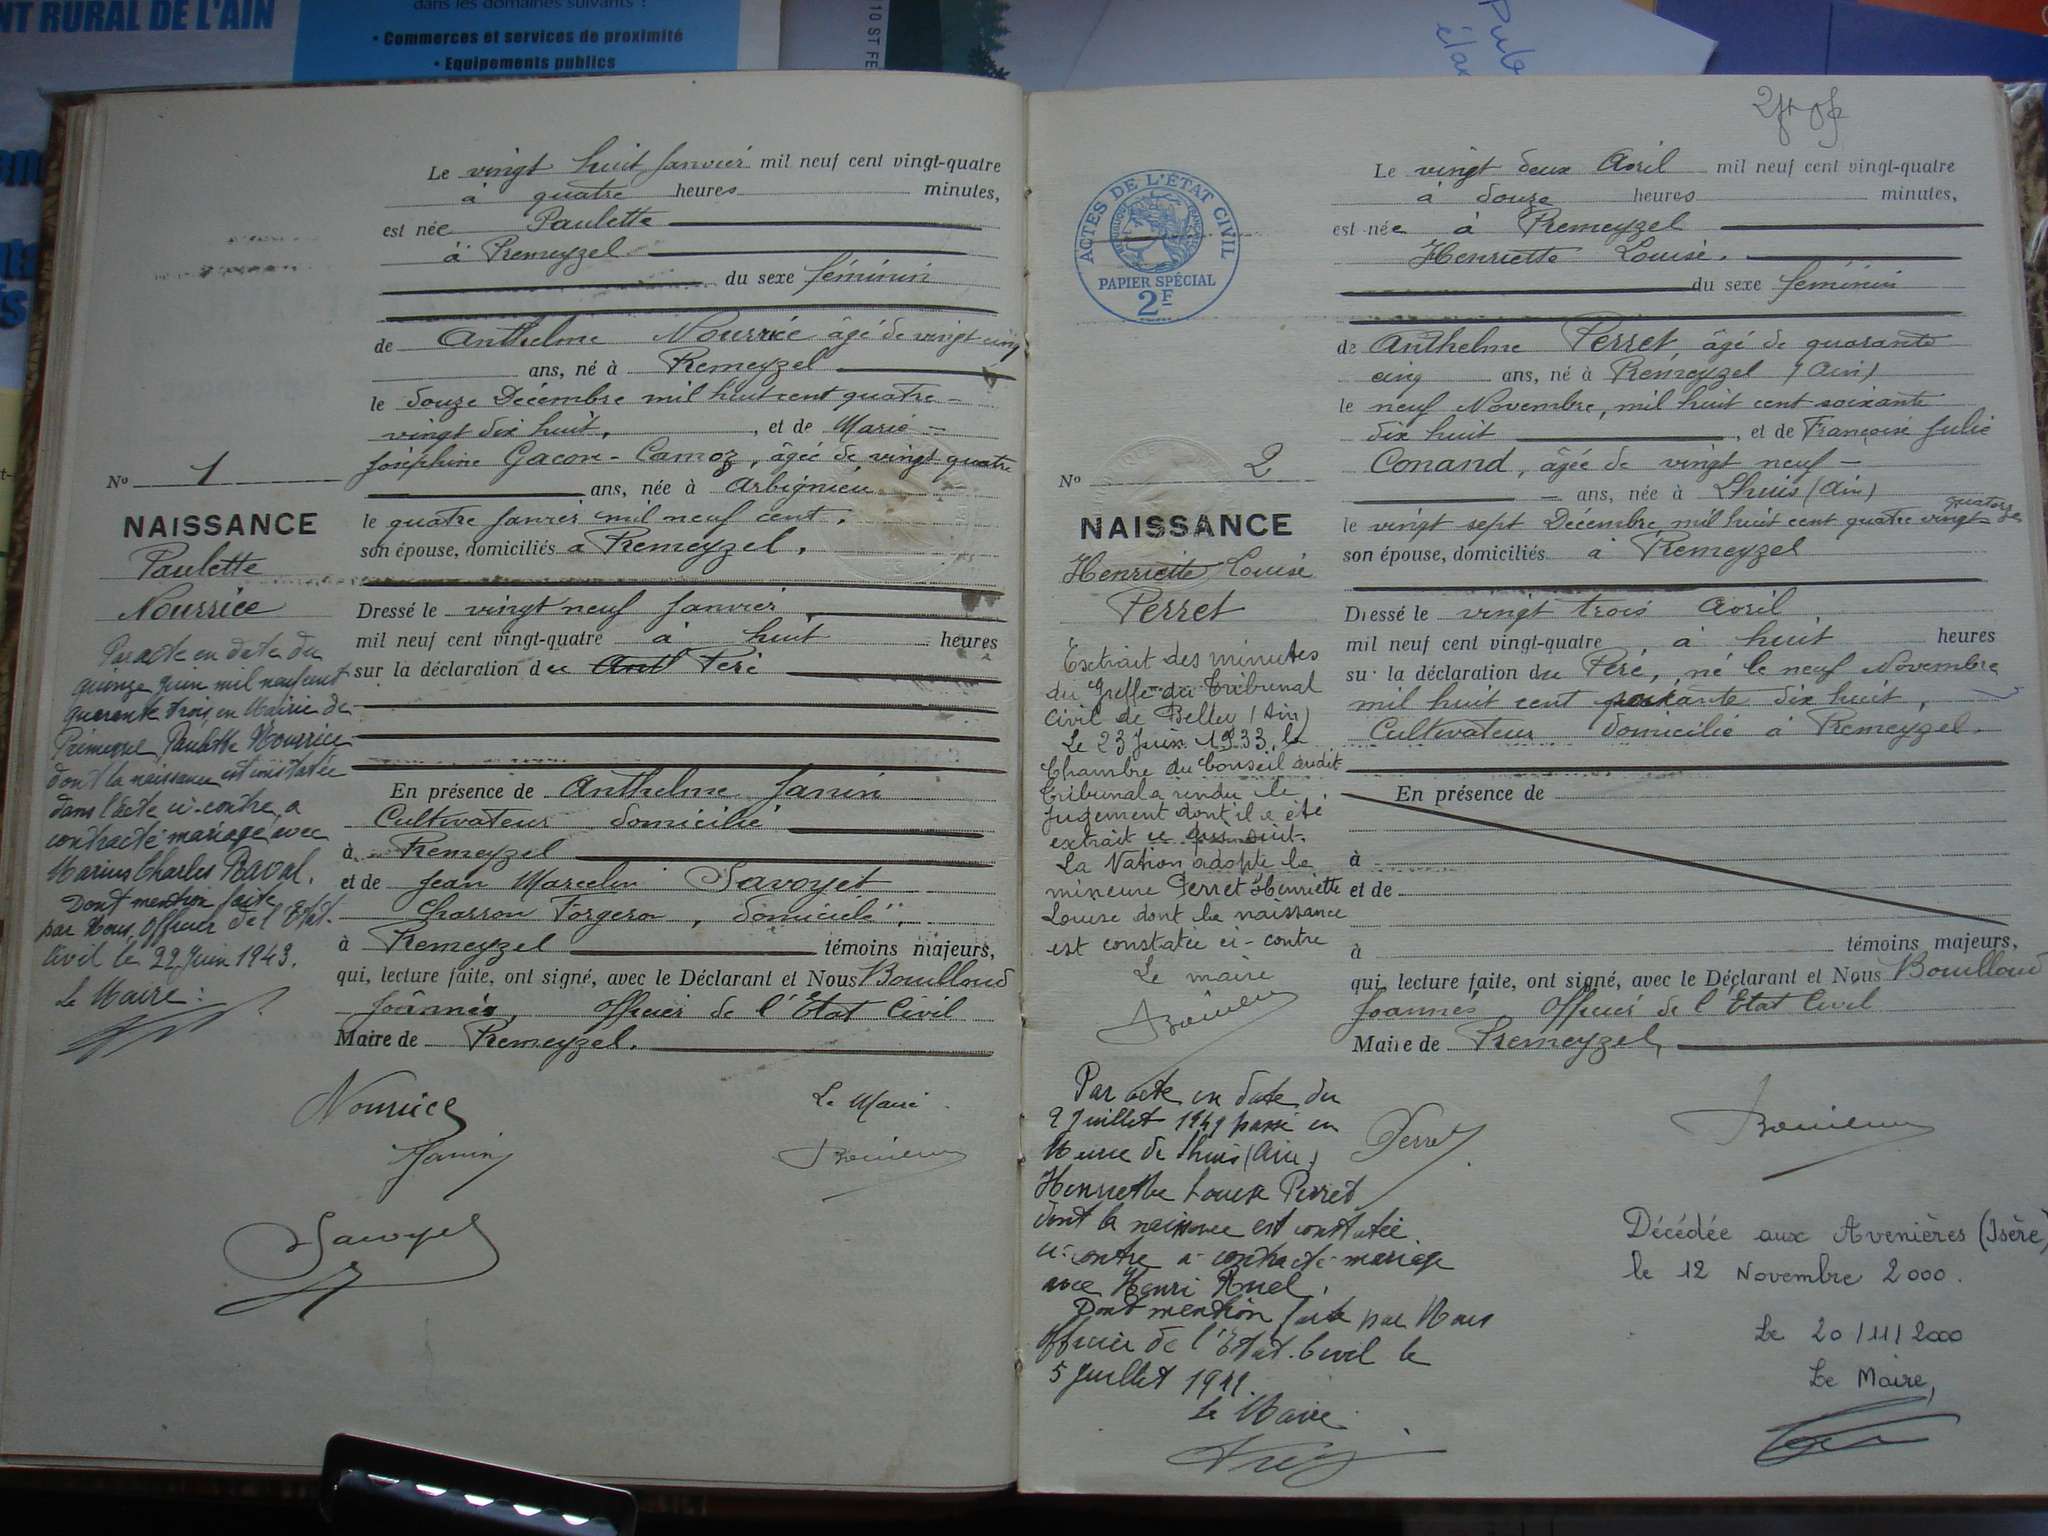 NT RURAL DE L'AIN
dans les domaines suivants :
• Commerces et services de proximité
• Equipements publics
10 ST FE
Pub
Le vingt huit Janvier mil neuf cent vingt-quatre
à quatre heures minutes,
est née Paulette
à Premeyzel
du sexe féminin
de Anthelme Nourrice âgé de vingt cinq
ans, né à Premeyzel
le douze Décembre mil huit cent quatre-
vingt dix huit, , et de Marie-
Joséphine Gacon-Camoz, âgée de vingt quatre
ans, née à Arbignieu
le quatre Janvier mil neuf cent,
son épouse, domiciliés à Premeyzel,
No 1
NAISSANCE
Paulette
Nourrice
Dressé le vingt neuf Janvier
mil neuf cent vingt-quatre à huit heures
sur la déclaration du Père
En présence de Anthelme Janin
Cultivateur domicilié
à Premeyzel
et de Jean Marcelin Savoyet
Charron Forgeron, domicilié,
à Premeyzel témoins majeurs,
qui, lecture faite, ont signé, avec le Déclarant et Nous Bouilloud
Joännés, Officier de l'Etat Civil
Maire de Premeyzel.
Par acte en date du
quinze juin mil neuf cent
quarante trois en Mairie de
Prémeyzel Paulette Nourrice
dont la naissance est constatée
dans l'acte ci-contre, a
contracté mariage avec
Marius Charles Raval.
Dont mention faite
par Nous, Officier de l'Etat-
Civil le 22 Juin 1943.
Le Maire:
Nourrice
Le Maire
Janin
Savoyet
ACTES DE L'ÉTAT CIVIL
PAPIER SPÉCIAL
2F
Le vingt deux Avril mil neuf cent vingt-quatre
à douze heures minutes,
est née à Premeyzel
Henriette Louise.
du sexe féminin
de Anthelme Perret, âgé de quarante
cinq ans, né à Premeyzel (Ain)
le neuf Novembre, mil huit cent soixante
dix huit , et de Françoise Julie
Conand, âgée de vingt neuf -
ans, née à Lhuis (Ain)
le vingt sept Décembre mil huit cent quatre vingt quatorze
son épouse, domiciliés à Premeyzel
No 2
NAISSANCE
Henriette Louise
Perret
Dressé le vingt trois Avril
mil neuf cent vingt-quatre à huit heures
sur la déclaration du Père, né le neuf Novembre
mil huit cent soixante dix huit,
Cultivateur domicilié à Premeyzel.
En présence de
à
et de
à témoins majeurs,
qui, lecture faite, ont signé, avec le Déclarant et Nous Bouilloud
Joannés Officier de l'Etat Civil
Maire de Premeyzel,
Extrait des minutes
du Greffe du Tribunal
Civil de Belley (Ain)
Le 23 Juin 1933, la
Chambre du Conseil dudit
tribunal a rendu le
jugement dont il a été
extrait ce qui suit.
La Nation adopte la
mineure Perret Henriette
Louise dont la naissance
est constatée ci-contre
Le maire
Par acte en date du
Juillet passé en
Mairie de Lhuis (Ain)
Henriette Louise Perret
dont la naissance est constatée
ci-contre a contracté mariage
avec Henri
Dont mention faite par Nous
Officier de l'Etat-Civil le
5 Juillet
Le Maire
Perret
Décédée aux Avenières (Isère)
le 12 Novembre 2000.
Le 20/11/2000
Le Maire,